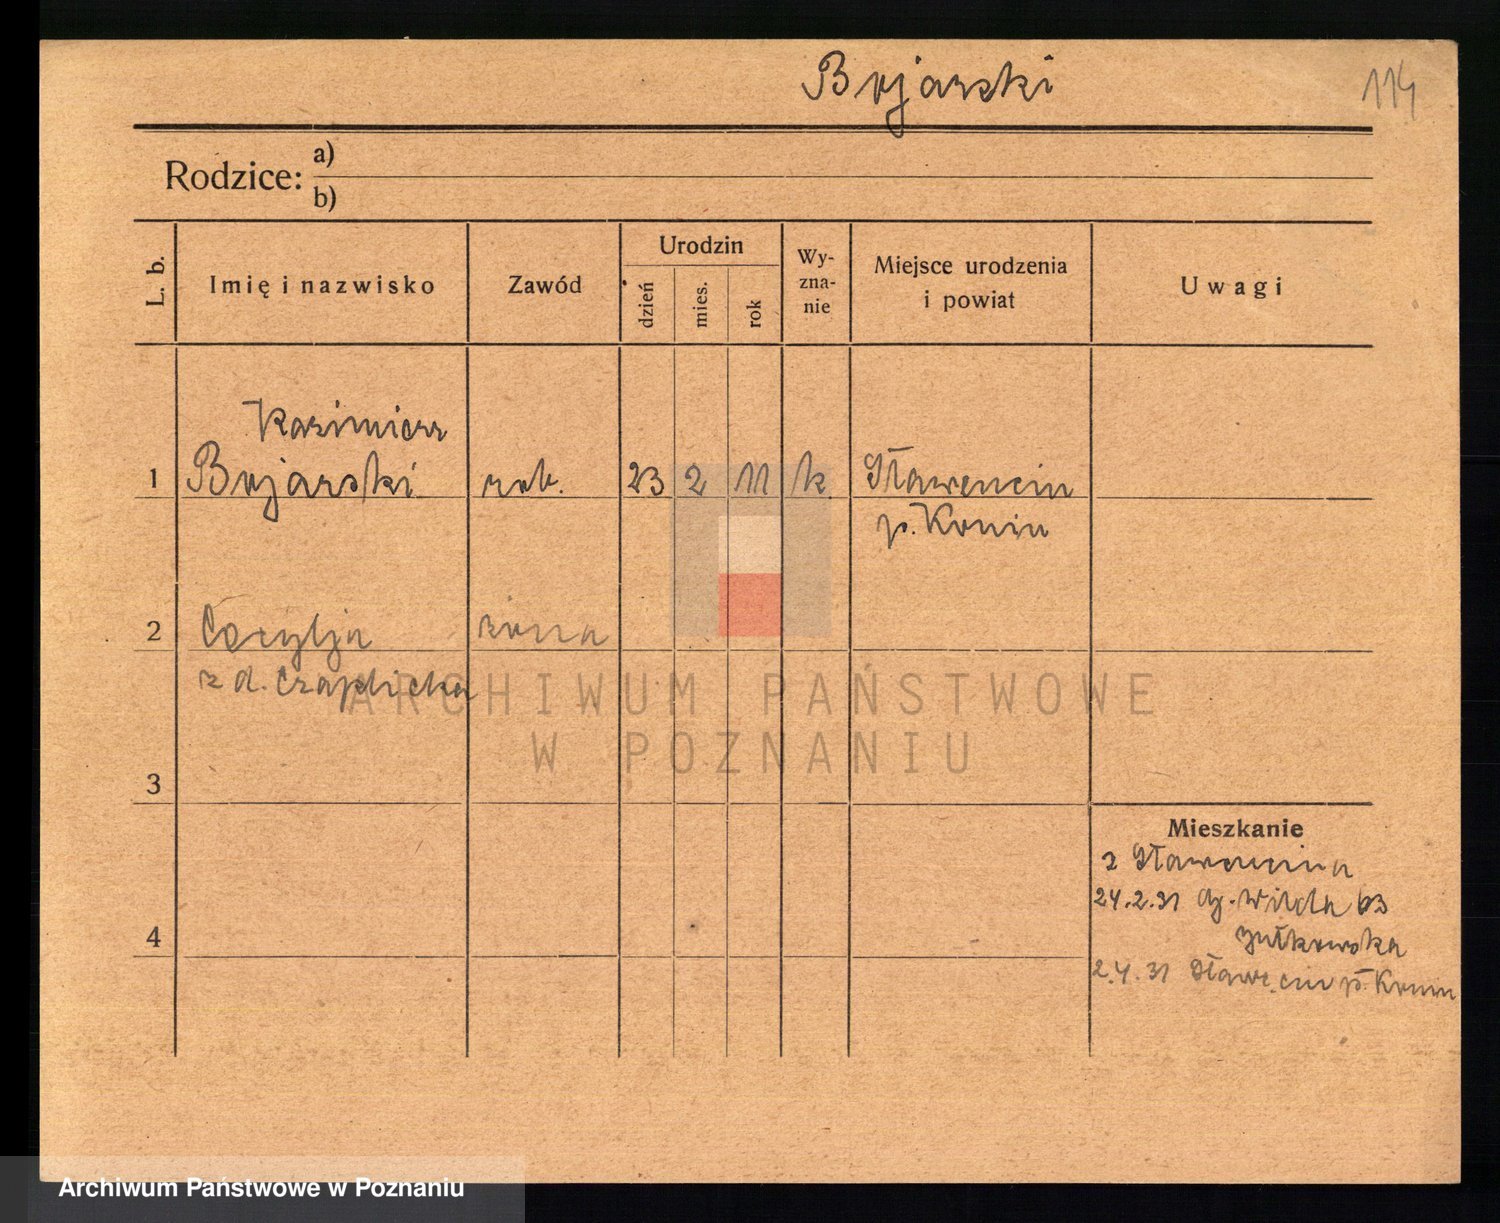 Bojarski
114
Rodzice: a)
b)
L. b.
Imię i nazwisko
Zawód
Urodzin
dzień
mies.
rok
Wy-
zna-
nie
Miejsce urodzenia
i powiat
Uwagi
Kazimierz
1 Bojarski rob. 23 2 11 k. Sławencin
p. Konin
2 Cecylja żona
z d. Czaplicka
3
4
Mieszkanie
z Sławencina
24.2.31 G. Wilda 63
2.4.31 Sławencin p. Konin
ARCHIWUM PAŃSTWOWE
W POZNANIU
Archiwum Państwowe w Poznaniu